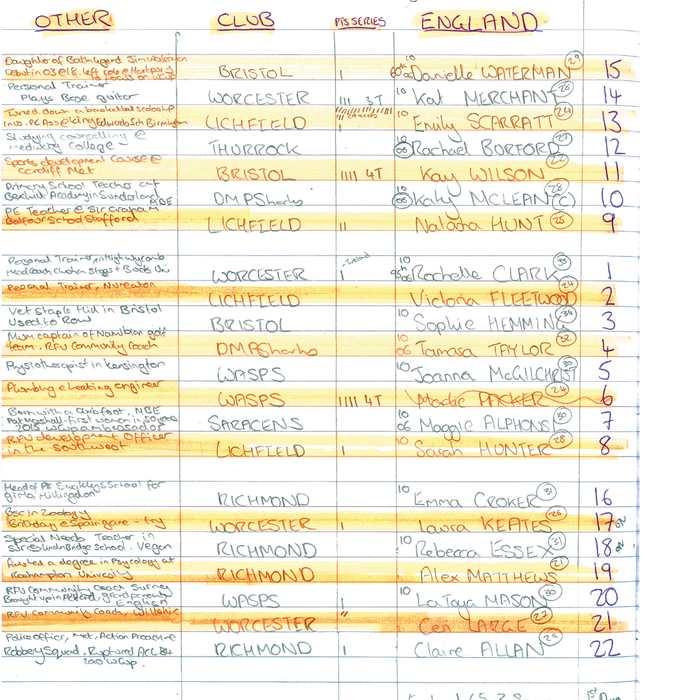 OTHER CLUB PTS SERIES ENGLAND
Daughter of Bath legend Jim Waterman
BRISTOL 1 Danielle WATERMAN 29 15
Personal Trainer
Plays Base guitar WORCESTER 111 3T 10 Kat MERCHANT 28 14
Turned down a basketball scholarship
Edwards Sch Birmingham LICHFIELD 1 10 Emily SCARRATT 24 13
Studying counselling @
medway College THURROCK 10 06 Rachael BURFORD 12
Sports development course @
Cardiff Met BRISTOL 1111 4T Kay WILSON 22 11
Primary School Teacher at
Academy in Sunderland MBE DMPSharks 10 06 Katy MCLEAN (C) 28 10
PE Teacher @ Sir Graham
Balfour School Stafford LICHFIELD 11 Natasha HUNT 25 9
Personal Trainer, in High Wycomb
Head Coach Stags + Bucks Uni WORCESTER 1 10 06 Rochelle CLARK 33 1
Personal Trainer, Nuneaton
LICHFIELD Victoria FLEETWOOD 24 2
Vet Staple Hill in Bristol
Used to Row BRISTOL 10 Sophie HEMMING 34 3
Mum captain of Namibian golf
team. RFU Community Coach DMPSharks 10 06 Tamara TAYLOR 32 4
Physiotherapist in Kensington WASPS Joanna McGILCHRIST 30 5
Plumbing & heating engineer
WASPS 1111 4T PACKER 24 6
Born with a club foot. MBE
first woman in 50 years
2015 WCup ambassador SARACENS 10 06 Maggie ALPHONSI 30 7
RFU development Officer
in the southwest LICHFIELD 1 10 Sarah HUNTER 28 8
Head of PE School for
girls Hillingdon RICHMOND 10 Emma CROKER 31 16
Bsc in Zoology
Birthday @ Spair game - try WORCESTER 1 Laura KEATES 26 17
Special Needs Teacher in
School. Vegan RICHMOND 10 Rebecca ESSEX 31 18
Awarded a degree in Psychology at
Roehampton University RICHMOND Alex MATTHEWS 21 19
RFU Community Coach Surrey
English WASPS 1 10 LaToya MASON 30 20
RFU Community Coach, Wiltshire
WORCESTER 11 Ceri LARGE 27 21
Police officer, Met, Action Proactive
Robbery Squad. Ruptured ACL B4
WCup. RICHMOND 1 10 Claire ALLAN 29 22